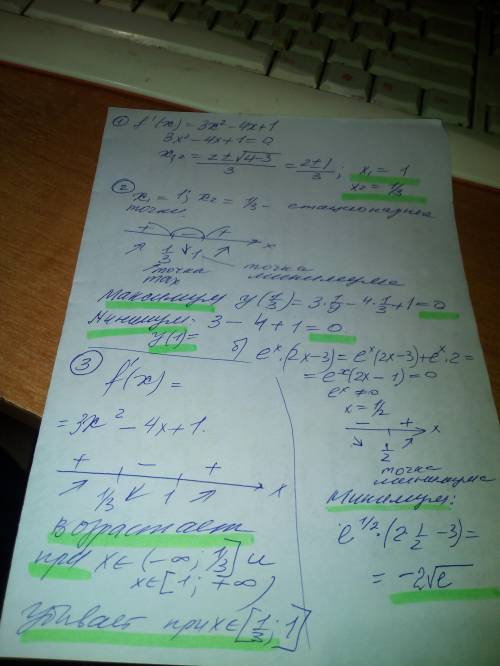 ① f'(x) = 3x² - 4x + 1
3x² - 4x + 1 = 0
x₁,₂ = (2 ± √(4-3))/3 = (2 ± 1)/3; x₁ = 1
x₂ = 1/3
② x₁ = 1; x₂ = 1/3 - стационарные
точки.
+ - + x
1/3 1
точка max
точка минимума
Максимум y(1/3) = 3·1/9 - 4·1/3 + 1 = 0
Минимум: 3 - 4 + 1 = 0
y(1) =
б) eˣ·(2x-3) = eˣ(2x-3) + eˣ·2 =
= eˣ(2x - 1) = 0
eˣ ≠ 0
x = 1/2
- + x
1/2
точка
минимума
Минимум:
e^1/2·(2·1/2 - 3) =
= -2√e
③ f'(x) =
= 3x² - 4x + 1.
+ - +
1/3 1 x
Возрастает
при x∈(-∞; 1/3] и
x∈[1; +∞)
Убывает при x∈[1/3; 1]